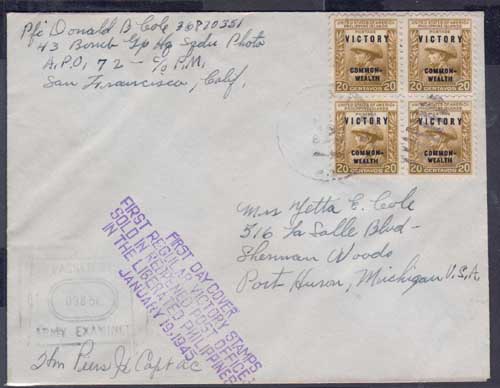 Pfc Donald B Cole 36870351
43 Bomb Gp Hq Sqdn Photo
A.P.O. 72 - c/o P.M.
San Francisco, Calif.
UNITED STATES OF AMERICA
VICTORY
COMMON-
WEALTH
20 CENTAVOS 20
UNITED STATES OF AMERICA
VICTORY
COMMON-
WEALTH
20 CENTAVOS 20
UNITED STATES OF AMERICA
VICTORY
COMMON-
WEALTH
20 CENTAVOS 20
UNITED STATES OF AMERICA
VICTORY
COMMON-
WEALTH
20 CENTAVOS 20
Mrs Yetta E. Cole
516 La Salle Blvd-
Sherman Woods
Port Huron, Michigan U.S.A
FIRST DAY COVER
FIRST REGULAR VICTORY STAMPS
SOLD IN REOPENED POST OFFICE
IN THE LIBERATED PHILIPPINES
JANUARY 19, 1945
PASSED BY
ARMY EXAMINER
Capt AC